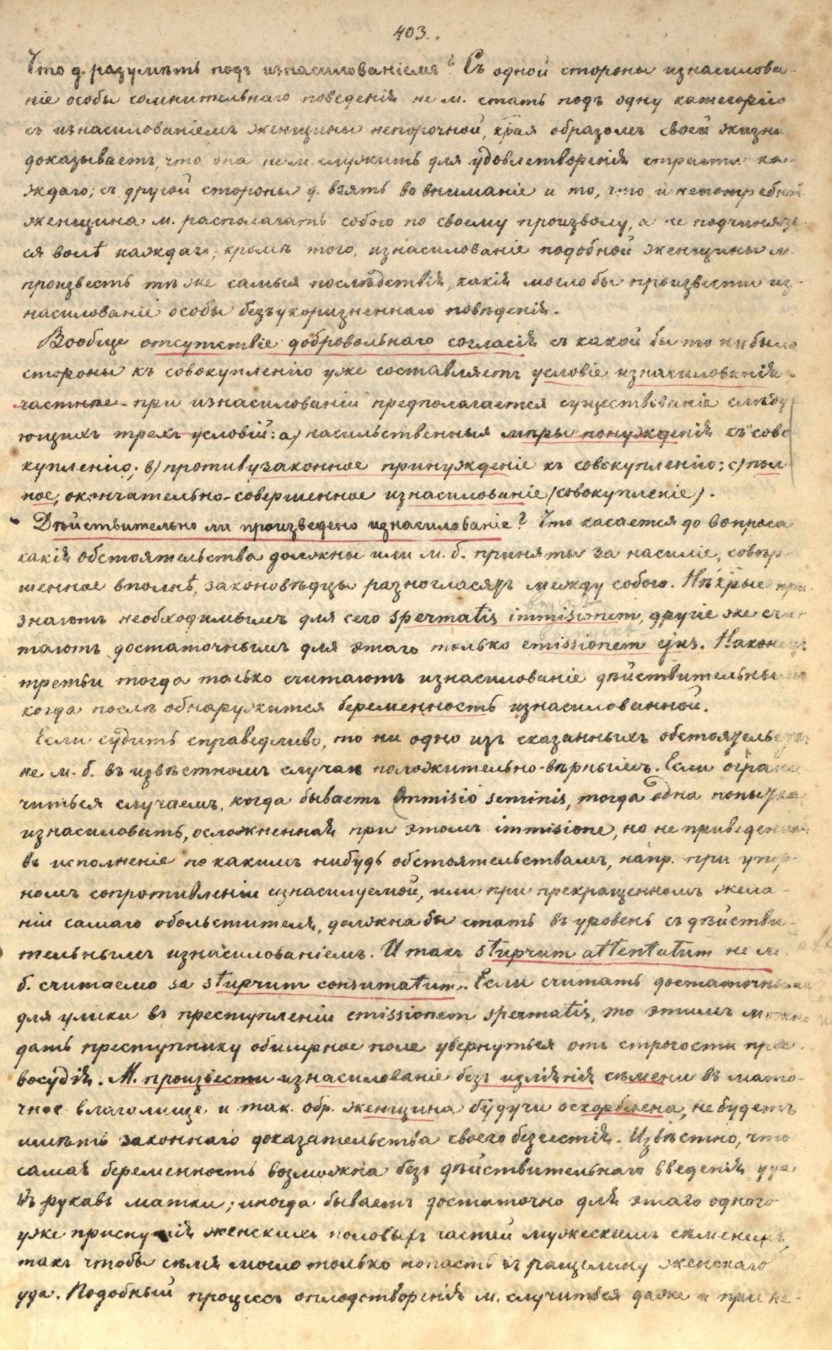 403.
Что д. разумѣть подъ изнасилованіемъ? Съ одной стороны изнасилова-
ніе особы сомнительнаго поведенія не м. стать подъ одну категорію
съ изнасилованіемъ женщины непорочной, края образомъ своей жизни
доказываетъ, что она не м. служить для удовлетворенія страсти ка-
ждаго; съ другой стороны д. взять во вниманіе и то, что и непотребная
женщина м. располагать собою по своему произволу, а не подчинять-
ся волѣ каждаго; кромѣ того, изнасилованіе подобной женщины м.
произвесть тѣ же самыя послѣдствія, какія могло бы произвести из-
насилованіе особы безъукоризненнаго поведенія.
Вообще отсутствіе добровольнаго согласія съ какой бы то ни было
стороны къ совокупленію уже составляетъ условіе изнасилованія.
частное при изнасилованіи предполагается существованіе слѣду-
ющихъ трехъ условій: а) насильственныя мѣры понужденія къ сово-
купленію; в) противузаконное принужденіе къ совокупленію; с) пол-
ное, окончательно-совершенное изнасилованіе (совокупленіе).
Дѣйствительно ли произведено изнасилованіе? Что касается до вопроса
какія обстоятельства должны или м. б. приняты за насиліе, совер-
шенное вполнѣ, законовѣдцы разногласятъ между собою. Нѣкрые при-
знаютъ необходимымъ для сего spermatis immisionem, другіе же счи-
таютъ достаточнымъ для этаго только emissionem ejus. Наконецъ
третьи тогда только считаютъ изнасилованіе дѣйствительнымъ
когда послѣ обнаружится беременность изнасилованной.
Если судить справедливо, то ни одно изъ сказанныхъ обстоятельствъ
не м. б. въ извѣстномъ случаѣ положительно-вѣрнымъ. Если ограни-
читься случаемъ, когда бываетъ immisio seminis, тогда одна попытка
изнасиловать, осложненная при этомъ immisione, но не приведенная
въ исполненіе по какимъ нибудь обстоятельствамъ, напр. при упор-
номъ сопротивленіи изнасилуемой, или при прекращенномъ жела-
ніи самаго обольстителя, должна бы стать въ уровень съ дѣйстви-
тельнымъ изнасилованіемъ. И такъ stuprum attentatum не м.
б. считаемо за stuprum consumatum. Если считать достаточнымъ
для улики въ преступленіи emissionem spermatis, то этимъ можно
дать преступнику обширное поле увернуться отъ строгости пра-
восудія. М. произвести изнасилованіе безъ изліянія сѣмени въ мато-
чное влагалище и так. обр. женщина будучи оскорблена, не будетъ
имѣть законнаго доказательства своего безчестія. Извѣстно, что
самая беременность возможна безъ дѣйствительнаго введенія уда
въ рукавъ матки; иногда бываетъ достаточно для этаго одного
уже женскихъ половыхъ частей мужескимъ сѣменемъ,
такъ чтобы сѣмя могло только попасть въ ращелину женскаго
уда. Подобный процессъ оплодотворенія м. случиться даже и при не-